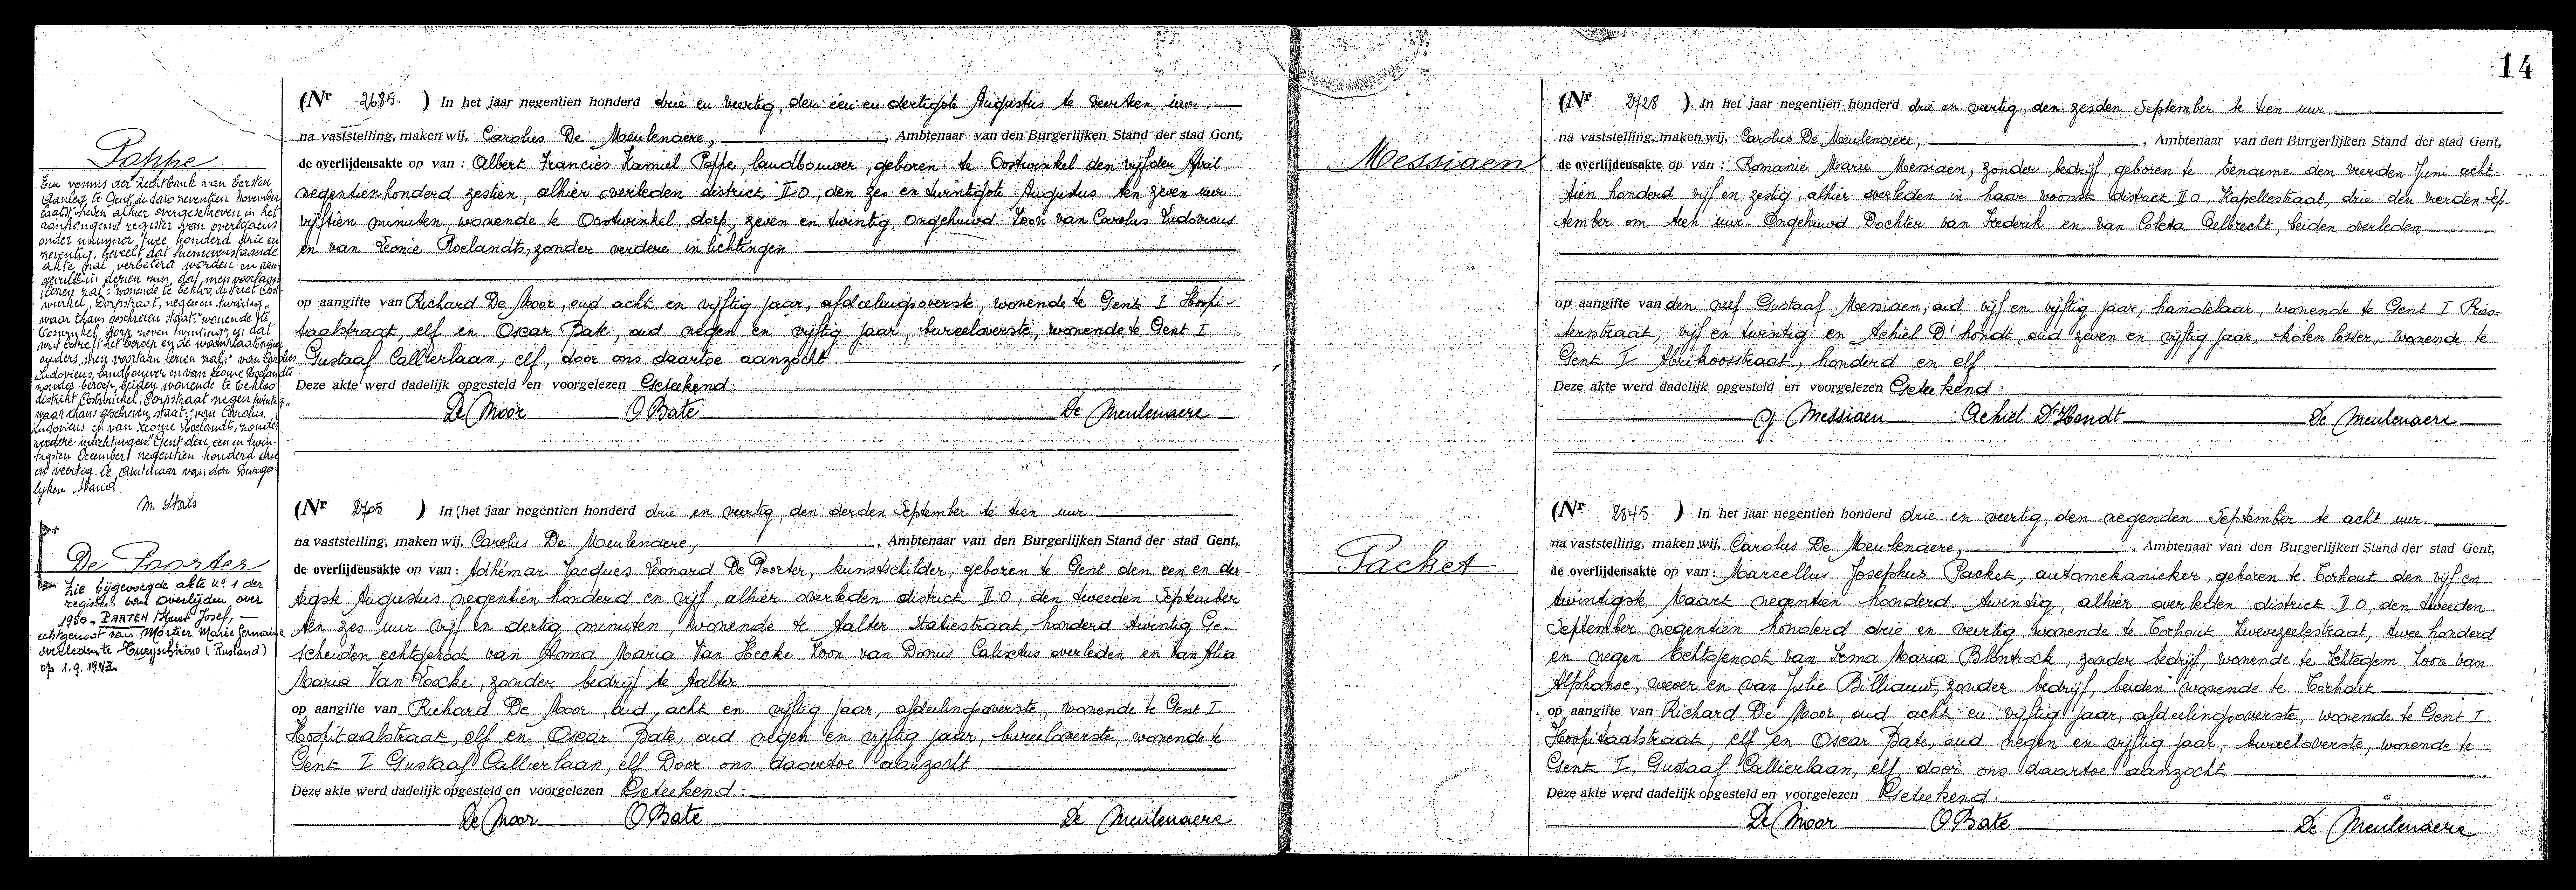 14
Poppe
Een vonnis der Rechtbank van Eersten
Aanleg te Gent, de dato zeventien November
laatst leden alhier overgeschreven in het
aanhangend register van overlijdens
onder nummer twee honderd drie en
neventig, beveelt dat nevenstaande
akte zal verbeterd worden en aan-
gevuld in dezen zin, dat men voortaan
lezen zal: "wonende te Eekloo, district Oost-
winkel, Dorpstraat, negen en twintig"
waar thans geschreven staat: "wonende te
Oostwinkel, dorp, zeven twintig" en dat
wat betreft het beroep en de woonplaats
ouders, men voortaan lezen zal: "van Carolus
Ludovicus, landbouwer en van Leonie Roelandts
zonder beroep, beiden wonende te Eekloo
distrikt Oostwinkel, Dorpstraat negen twintig"
waar thans geschreven staat: "van Carolus
Ludovicus en van Leonie Roelandts, zonder
verdere inlichtingen." Gent den een en twin-
tigsten December negentien honderd drie
en veertig. De Ambtenaar van den Burger-
lijken Stand
M. Stals
(Nr 2685. ) In het jaar negentien honderd drie en veertig, den een en dertigste Augustus te veertien uur
na vaststelling, maken wij, Carolus De Meulenaere, , Ambtenaar van den Burgerlijken Stand der stad Gent,
de overlijdensakte op van : Albert Francies Kamiel Poppe, landbouwer, geboren te Oostwinkel den vijfden April
negentienhonderd zestien, alhier overleden district II O, den zes en twintigste Augustus ten zeven uur
vijftien minuten, wonende te Oostwinkel dorp, zeven en twintig. Ongehuwd Zoon van Carolus Ludovicus
en van Leonie Roelandts, zonder verdere inlichtingen
op aangifte van Richard De Moor, oud acht en vijftig jaar, afdeelingsoverste, wonende te Gent I Hospi-
taalstraat, elf en Oscar Bate, oud negen en vijftig jaar, bureeloverste, wonende te Gent I
Gustaaf Callierlaan, elf, door ons daartoe aanzocht
Deze akte werd dadelijk opgesteld en voorgelezen Geteekend:
De Moor O Bate De Meulenaere
De Poorter
Zie bijgevoegde akte No 1 der
register van Overlijden over
1950 - PARTEN Knut Josef, —
echtgenoot van Mortier Marie Germaine
overleden te (Rusland)
op 1.9.1943
(Nr 2705 ) In het jaar negentien honderd drie en veertig, den derden September te tien uur
na vaststelling, maken wij, Carolus De Meulenaere, , Ambtenaar van den Burgerlijken Stand der stad Gent,
de overlijdensakte op van : Adhémar Jacques Léonard De Poorter, kunstschilder, geboren te Gent den een en der-
tigste Augustus negentien honderd en vijf, alhier overleden district II O, den tweeden September
ten zes uur vijf en dertig minuten, wonende te Aalter Statiestraat, honderd twintig Ge-
scheiden echtgenoot van Anna Maria Van Hecke Zoon van Donus Calixtus overleden en van Alia
Maria Van Loocke, zonder bedrijf te Aalter
op aangifte van Richard De Moor, oud, acht en vijftig jaar, afdeelingsoverste, wonende te Gent I
Hospitaalstraat, elf en Oscar Bate, oud negen en vijftig jaar, bureeloverste, wonende te
Gent I Gustaaf Callierlaan, elf Door ons daartoe aanzocht
Deze akte werd dadelijk opgesteld en voorgelezen Geteekend:
De Moor O Bate De Meulenaere
Messiaen
(Nr 2728 ) In het jaar negentien honderd drie en veertig, den zesden September te tien uur
na vaststelling, maken wij, Carolus De Meulenaere, , Ambtenaar van den Burgerlijken Stand der stad Gent,
de overlijdensakte op van : Romanie Marie Messiaen, zonder bedrijf, geboren te Eename den vierden Juni acht-
tien honderd vijf en zestig, alhier overleden in haar woonst district II O, Kapellestraat, drie den vierden Sep-
tember om tien uur Ongehuwd Dochter van Frederik en van Coleta Aelbrecht, beiden overleden
op aangifte van den neef Gustaaf Messiaen, oud vijf en vijftig jaar, handelaar, wonende te Gent I Ries-
ternstraat, vijf en twintig en Achiel D'hondt, oud zeven en vijftig jaar, kolen losser, wonende te
Gent I Abrikoosstraat, honderd en elf
Deze akte werd dadelijk opgesteld en voorgelezen Geteekend:
G Messiaen Achiel D'Hondt De Meulenaere
Packet
(Nr 2845 ) In het jaar negentien honderd drie en veertig, den negenden September te acht uur
na vaststelling, maken wij, Carolus De Meulenaere, , Ambtenaar van den Burgerlijken Stand der stad Gent,
de overlijdensakte op van : Marcellus Josephus Packet, automekanieker, geboren te Torhout den vijf en
twintigste Maart negentien honderd twintig, alhier overleden district II O, den tweeden
September negentien honderd drie en veertig, wonende te Torhout, Zwevezeelestraat, twee honderd
en negen Echtgenoot van Irma Maria Blontrock, zonder bedrijf, wonende te Ichtegem Zoon van
Alphonse, wever en van Julie Billiauw, zonder bedrijf, beiden wonende te Torhout
op aangifte van Richard De Moor, oud acht en vijftig jaar, afdeelingsoverste, wonende te Gent I
Hospitaalstraat, elf en Oscar Bate, oud negen en vijftig jaar, bureeloverste, wonende te
Gent I, Gustaaf Callierlaan, elf door ons daartoe aanzocht
Deze akte werd dadelijk opgesteld en voorgelezen Geteekend:
De Moor O Bate De Meulenaere